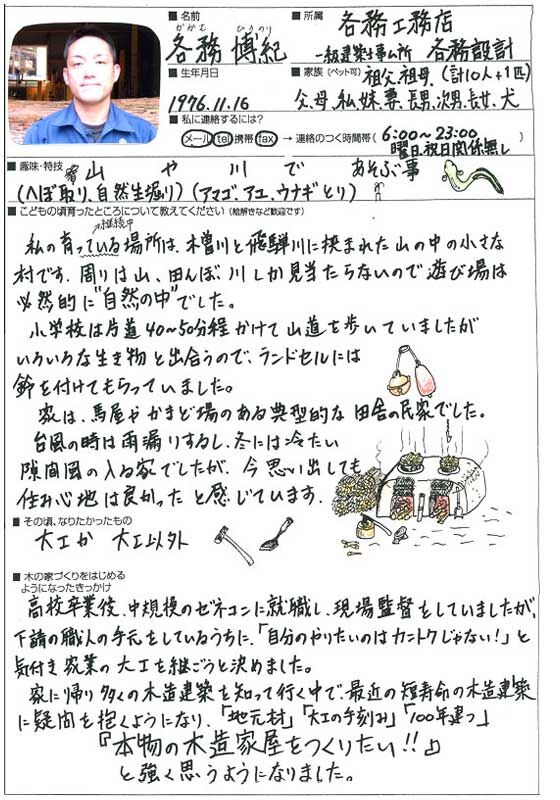 ■名前
かがむ ひろのり
各務 博紀
■所属 各務工務店
一級建築士事ム所 各務設計
■生年月日
1976.11.16
■家族(ペット可) 祖父,祖母,(計10人+1匹)
父、母、私、妹、妻、長男、次男、長女、犬
■私に連絡するには?
メール tel 携帯 fax → 連絡のつく時間帯(6:00〜23:00
曜日,祝日関係無し)
■趣味・特技 山 や 川で あそぶ事
(へぼ取り、自然生堀り)(アマゴ、アユ、ウナギとり)
■こどもの頃育ったところについて教えてください(絵解きなど歓迎です)
継続中
私の育っている場所は、木曽川と飛騨川に挟まれた山の中の小さな
村です。周りは山、田んぼ、川しか見当たらないので遊び場は
必然的に"自然の中"でした。
小学校は片道40〜50分程かけて山道を歩いていましたが
いろいろな生き物と出合うので、ランドセルには
鈴を付けてもらっていました。
家は、馬屋やかまど場のある典型的な田舎の民家でした。
台風の時は雨漏りするし、冬には冷たい
隙間風の入る家でしたが、今思い出しても
住み心地は良かったと感じています。
■その頃、なりたかったもの
大工か 大工以外
■木の家づくりをはじめる
ようになったきっかけ
高校卒業後、中規模のゼネコンに就職し、現場監督をしていましたが、
下請の職人の手元をしているうちに、「自分のやりたいのはカントクじゃない!」と
気付き家業の大工を継ごうと決めました。
家に帰り多くの木造建築を知って行く中で、最近の短寿命の木造建築
に疑問を抱くようになり、「地元材」「大工の手刻み」「100年建つ」
『本物の木造家屋をつくりたい!!』
と強く思うようになりました。